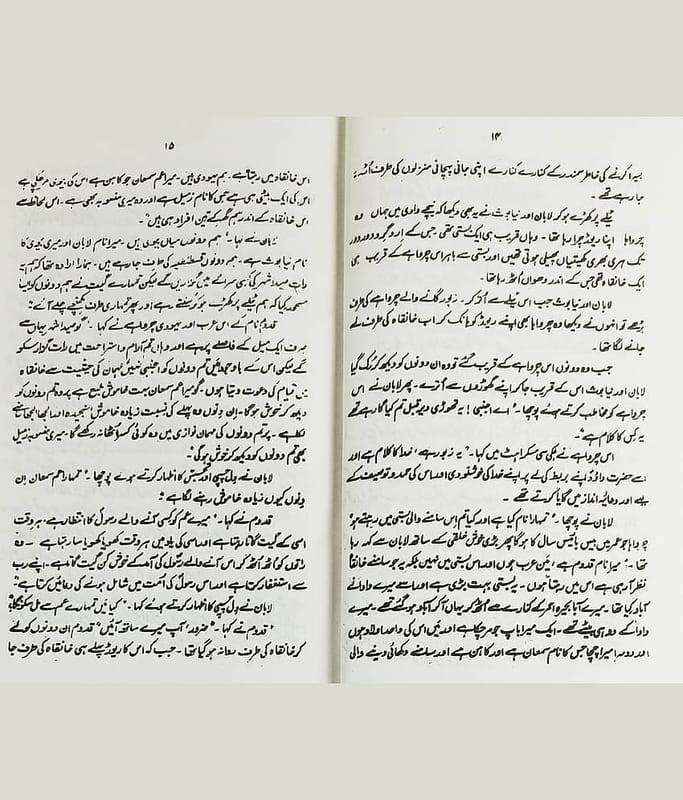 ۱۴
بسیرا کرنے کی خاطر سمندر کے کنارے کنارے اپنی جانی پہچانی منزلوں کی طرف اُڑے
جا رہے تھے۔
ٹیلے پر کھڑے ہو کر لابان اور نیابوث نے یہ بھی دیکھا کہ نیچے وادی میں جہاں وہ
چرواہا اپنا ریوڑ چرا رہا تھا۔ وہاں قریب ہی ایک بستی تھی جس کے اردگرد دور دور
تک ہری بھری کھیتیاں پھیلی ہوئی تھیں اور بستی سے باہر اس چرواہے کے قریب ہی
ایک خانقاہ تھی جس کے اندر دھواں اُٹھ رہا تھا۔
لابان اور نیابوث جب اس ٹیلے سے اُتر کر۔ زبور گانے والے چرواہے کی طرف
بڑھے تو انہوں نے دیکھا وہ چرواہا بھی اپنے ریوڑ کو ہانک کر اب خانقاہ کی طرف لے
جانے لگا تھا۔
جب وہ دونوں اس چرواہے کے قریب گئے تو وہ ان دونوں کو دیکھ کر رُک گیا
لابان اور نیابوث اس کے قریب جا کر اپنے گھوڑوں سے اُترے۔ پھر لابان نے اس
چرواہے کو مخاطب کرتے ہوئے پوچھا۔ "اے اجنبی! یہ تھوڑی دیر قبل تم کیا گا رہے تھے
یہ کس کا کلام ہے"۔
اس چرواہے نے ہلکی سی مسکراہٹ میں کہا۔ "یہ زبور ہے، خدا کا کلام ہے اور
اسے حضرت داؤدؑ اپنے بربط کی لے پر اپنے خدا کی خوشنودی اور اس کی حمد و توصیف کے
لیے اور دعائیہ انداز میں گایا کرتے تھے۔
لابان نے پوچھا۔ "تمہارا نام کیا ہے اور کیا تم اس سامنے والی بستی میں رہتے ہو"
چرواہا جو عمر میں بیس بائیس سال کا ہوگا پھر بڑی خوش خلقی کے ساتھ لابان سے کہہ رہا
تھا۔ "میرا نام قدوم ہے، میں عرب ہوں اور اس بستی میں نہیں بلکہ یہ جو سامنے خانقاہ
نظر آ رہی ہے اس میں رہتا ہوں۔ یہ بستی بہت بڑی ہے اور اسے میرے دادا نے
آباد کیا تھا۔ میرے آبا بحیرہ احمر کے کنارے سے اُٹھ کر یہاں آ کر آباد ہو گئے تھے۔ میرے
دادا کے دو ہی بیٹے تھے۔ ایک میرا باپ جو مر چکا ہے اور میں اس کی واحد اولاد ہوں
اور دوسرا میرا چچا جس کا نام سمعان ہے اور کاہن ہے اور سامنے دکھائی دینے والی
۱۵
اس خانقاہ میں رہتا ہے۔ ہم یہودی ہیں۔ میرا عم سمعان جو کاہن ہے اس کی بیوی مر چکی ہے
اس کی ایک بیٹی ہی ہے جس کا نام زمیل ہے اور وہ میری منسوبہ بھی ہے۔ اس لحاظ سے
اس خانقاہ کے اندر ہم گھر کے تین افراد ہی ہیں"۔
لابان نے کہا۔ "ہم دونوں میاں بیوی ہیں۔ میرا نام لابان اور میری بیوی کا
نام نیابوث ہے۔ ہم دونوں قسطنطنیہ کی طرف جا رہے ہیں۔ ہمارا ارادہ تھا کہ ہم یہ
رات صیدا شہر کی کسی سرائے میں گزاریں گے لیکن تمہارے گیت نے ہم دونوں کو ایسا
مسحور کیا کہ ہم ٹیلے پر کھڑے ہو کر سنتے رہے اور پھر تمہاری طرف کھنچے چلے آئے"۔
قدوم نام کے اس عرب اور یہودی چرواہے نے کہا۔ "گو صیدا شہر یہاں سے
صرف ایک میل کے فاصلے پر ہے اور وہاں تم آرام و استراحت میں رات گزار سکو
گے لیکن اس کے باوجود میں تم دونوں کو اجنبی نہیں مہمان کی حیثیت سے خانقاہ
میں قیام کی دعوت دیتا ہوں۔ گو میرا عم سمعان بہت خاموش طبع ہے پر وہ تم دونوں کو
دیکھ کر خوش ہوگا۔ ان دِنوں وہ پہلے کی نسبت زیادہ خاموش سنجیدہ اور الجھا الجھا رہنے
لگا ہے۔ پر تم دونوں کی مہمان نوازی میں وہ کوئی کسر اُٹھا نہ رکھے گا۔ میری منسوبہ زمیل
بھی تم دونوں کو دیکھ کر خوش ہوگی"۔
لابان نے دلچسپی اور تجسس کا اظہار کرتے ہوئے پوچھا۔ "تمہارا عم سمعان اِن
دِنوں کیوں زیادہ خاموش رہنے لگا ہے"۔
قدوم نے کہا۔ "میرے عم کو کسی آنے والے رسولؐ کا انتظار ہے، ہر وقت
اسی کے گیت گاتا رہتا ہے اور اسی کی یاد میں ہر وقت کھویا کھویا سا رہتا ہے۔ وہ
راتوں کو اُٹھ اُٹھ کر اس آنے والے رسولؐ کی آمد کے خوش کن گیت گاتا ہے۔ اپنے رب
سے استغفار کرتا ہے اور اس رسولؐ کی اُمت میں شامل ہونے کی دعائیں کرتا ہے"۔
لابان نے دلچسپی کا اظہار کرتے ہوئے کہا۔ "کیا میں تمہارے عم سے مل سکوں گا"۔
قدوم نے کہا۔ "ضرور، آپ میرے ساتھ آئیں" قدوم ان دونوں کو لے
کر خانقاہ کی طرف روانہ ہو گیا تھا۔ جب کہ اس کا ریوڑ پہلے ہی خانقاہ کی طرف جا